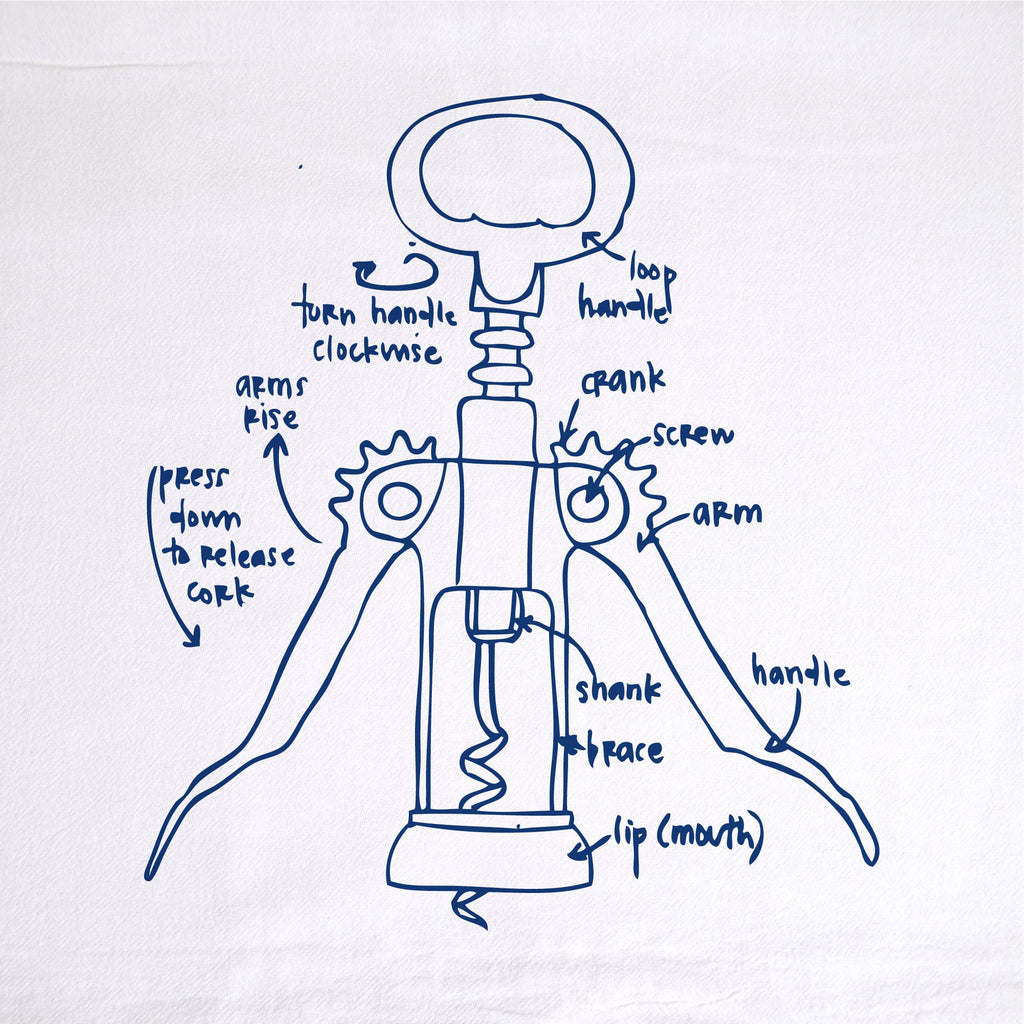 loop
handle
turn handle
clockwise
arms
rise
crank
screw
press
down
to release
cork
arm
shank
handle
brace
lip (mouth)